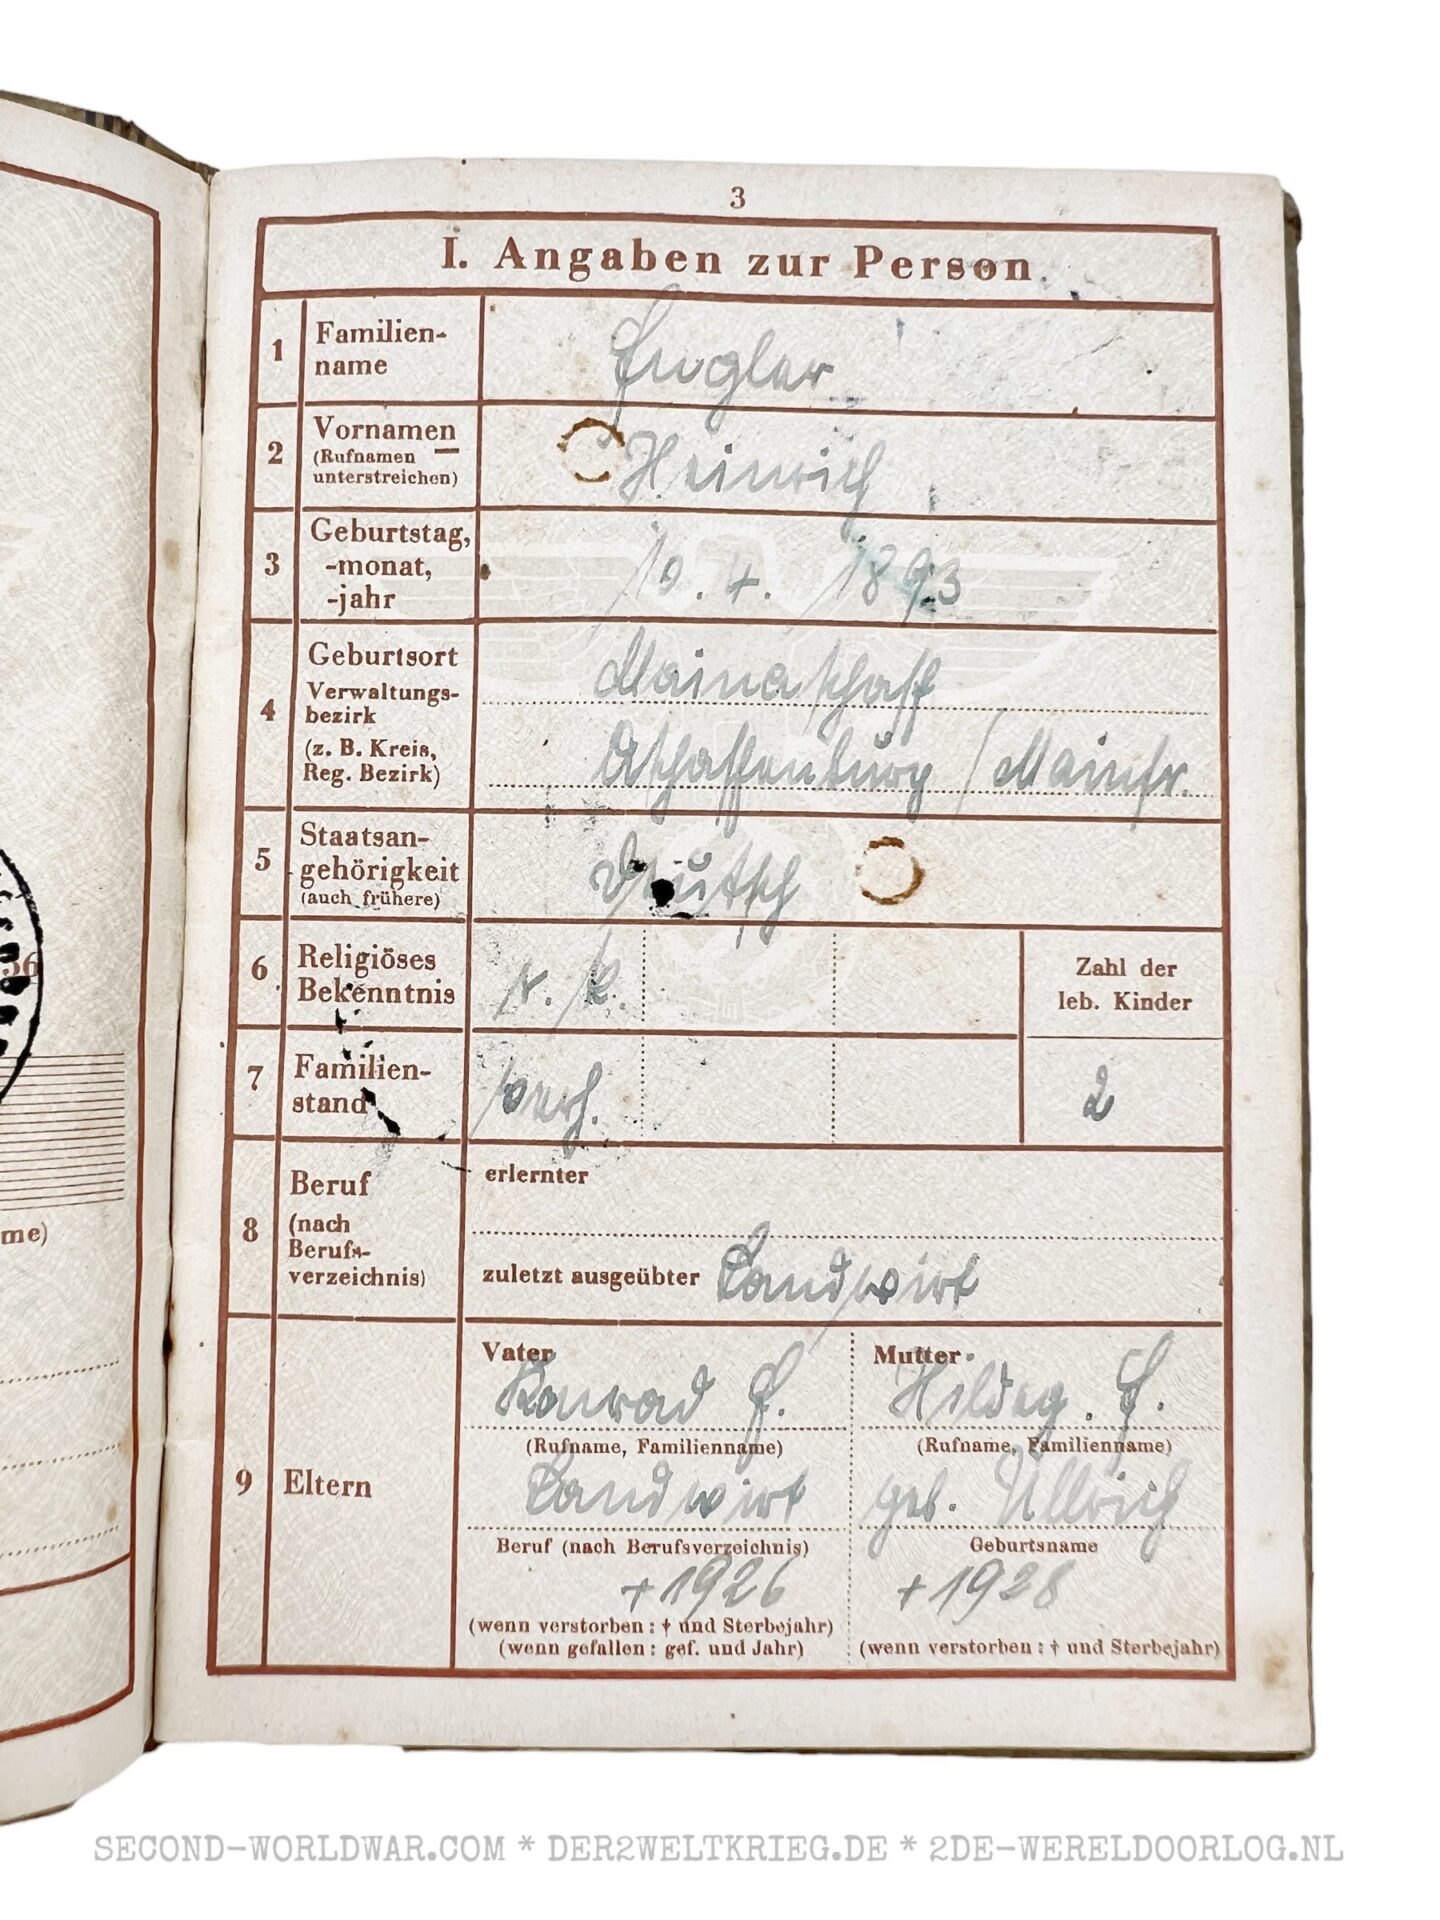 3
I. Angaben zur Person
1 Familien-
name
Engler
2 Vornamen
(Rufnamen
unterstreichen)
Heinrich
3 Geburtstag,
-monat,
-jahr
10. 4. 1893
4 Geburtsort
Verwaltungs-
bezirk
(z. B. Kreis,
Reg. Bezirk)
Mainaschaff
Aschaffenburg / Mainfr.
5 Staatsan-
gehörigkeit
(auch frühere)
Deutsch
6 Religiöses
Bekenntnis
r. k.
Zahl der
leb. Kinder
7 Familien-
stand
verh.
2
8 Beruf
(nach
Berufs-
verzeichnis)
erlernter
zuletzt ausgeübter Landwirt
9 Eltern
Vater
Konrad E.
(Rufname, Familienname)
Landwirt
Beruf (nach Berufsverzeichnis)
+ 1926
(wenn verstorben: † und Sterbejahr)
(wenn gefallen: gef. und Jahr)
Mutter
Hildeg. E.
(Rufname, Familienname)
geb. Ullrich
Geburtsname
+ 1928
(wenn verstorben: † und Sterbejahr)
me)
SECOND-WORLDWAR.COM * DER2WELTKRIEG.DE * 2DE-WERELDOORLOG.NL